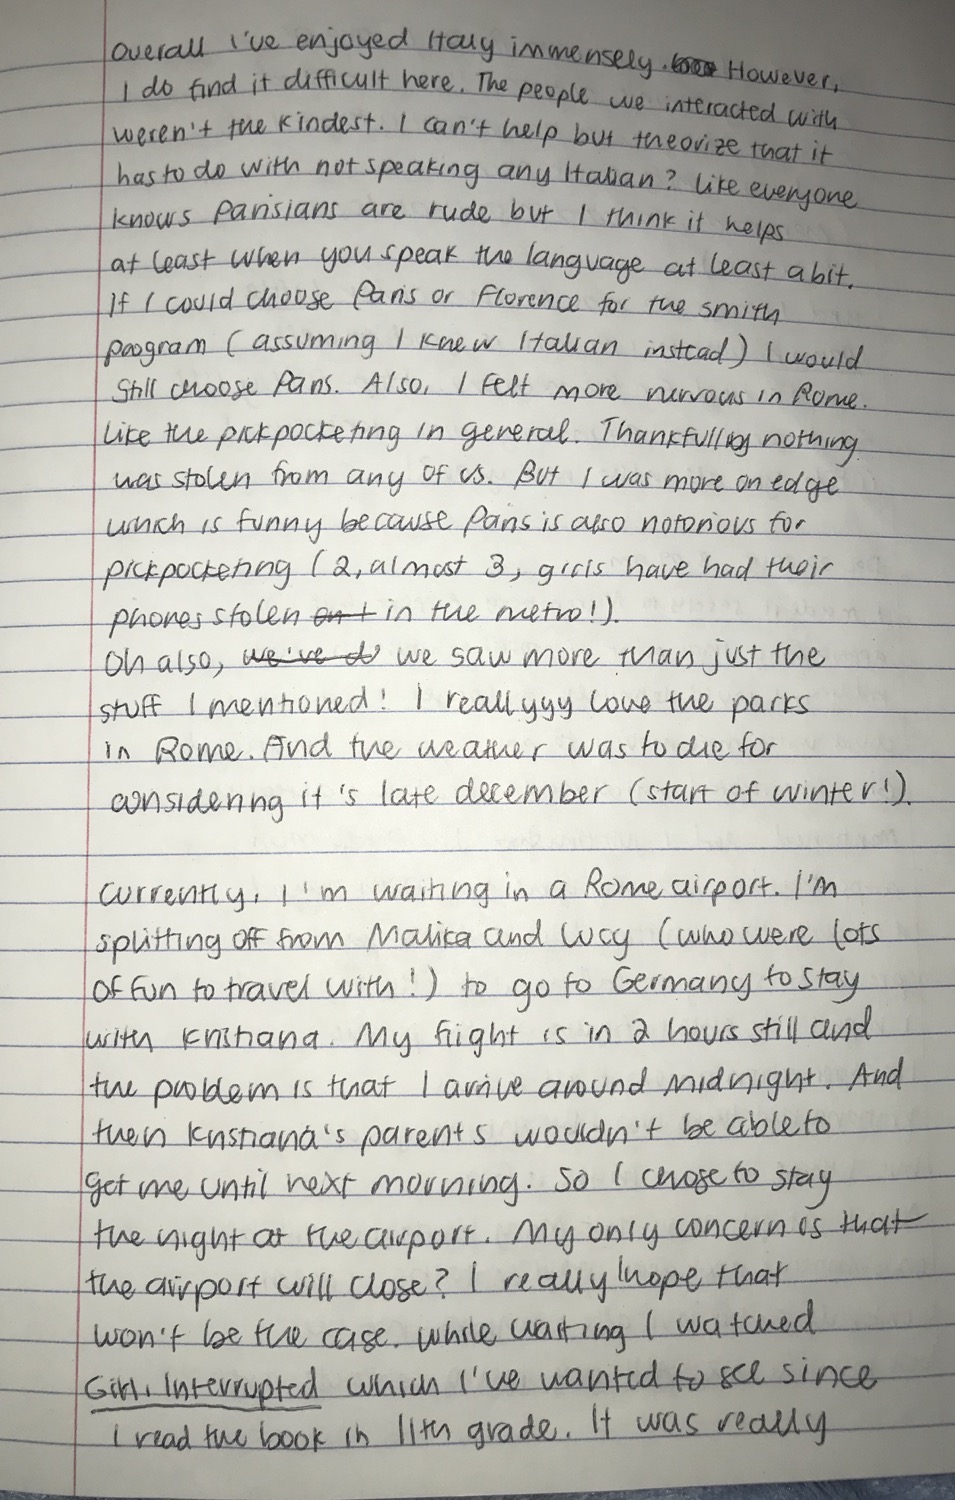 Overall I've enjoyed Italy immensely. However,
I do find it difficult here. The people we interacted with
weren't the kindest. I can't help but theorize that it
has to do with not speaking any Italian? Like everyone
knows Parisians are rude but I think it helps
at least when you speak the language at least a bit.
If I could choose Paris or Florence for the smith
program (assuming I knew Italian instead) I would
still choose Paris. Also, I felt more nervous in Rome.
Like the pickpocketing in general. Thankfully nothing
was stolen from any of us. But I was more on edge
which is funny because Paris is also notorious for
pickpocketing (2, almost 3, girls have had their
phones stolen in the metro!).
Oh also, we've d we saw more than just the
stuff I mentioned! I really yyy love the parks
in Rome. And the weather was to die for
considering it's late december (start of winter!).
Currently, I'm waiting in a Rome airport. I'm
splitting off from Malika and Lucy (who were lots
of fun to travel with!) to go to Germany to stay
with Kristiana. My flight is in 2 hours still and
the problem is that I arrive around midnight. And
then Kristiana's parents wouldn't be able to
get me until next morning. So I chose to stay
the night at the airport. My only concern is that
the airport will close? I really hope that
won't be the case. While waiting I watched
Girl, Interrupted which I've wanted to see since
I read the book in 11th grade. It was really